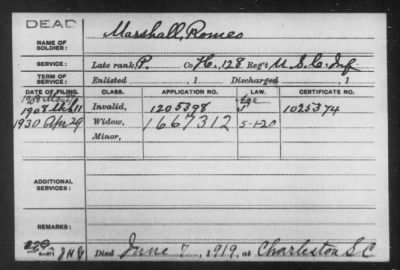 DEAD
NAME OF SOLDIER: Marshall, Romeo
SERVICE: Late rank P. Co H., 128 Reg't U.S.C. Inf
TERM OF SERVICE: Enlisted , 1 Discharged , 1
DATE OF FILING. CLASS. APPLICATION NO. LAW. CERTIFICATE NO.
Age
1908 Invalid, 1205398 1025374
1930 Apr 29 Widow, 1667312 5-1-20
Minor,
ADDITIONAL SERVICES:
REMARKS:
Died June 7, 1919, at Charleston S.C